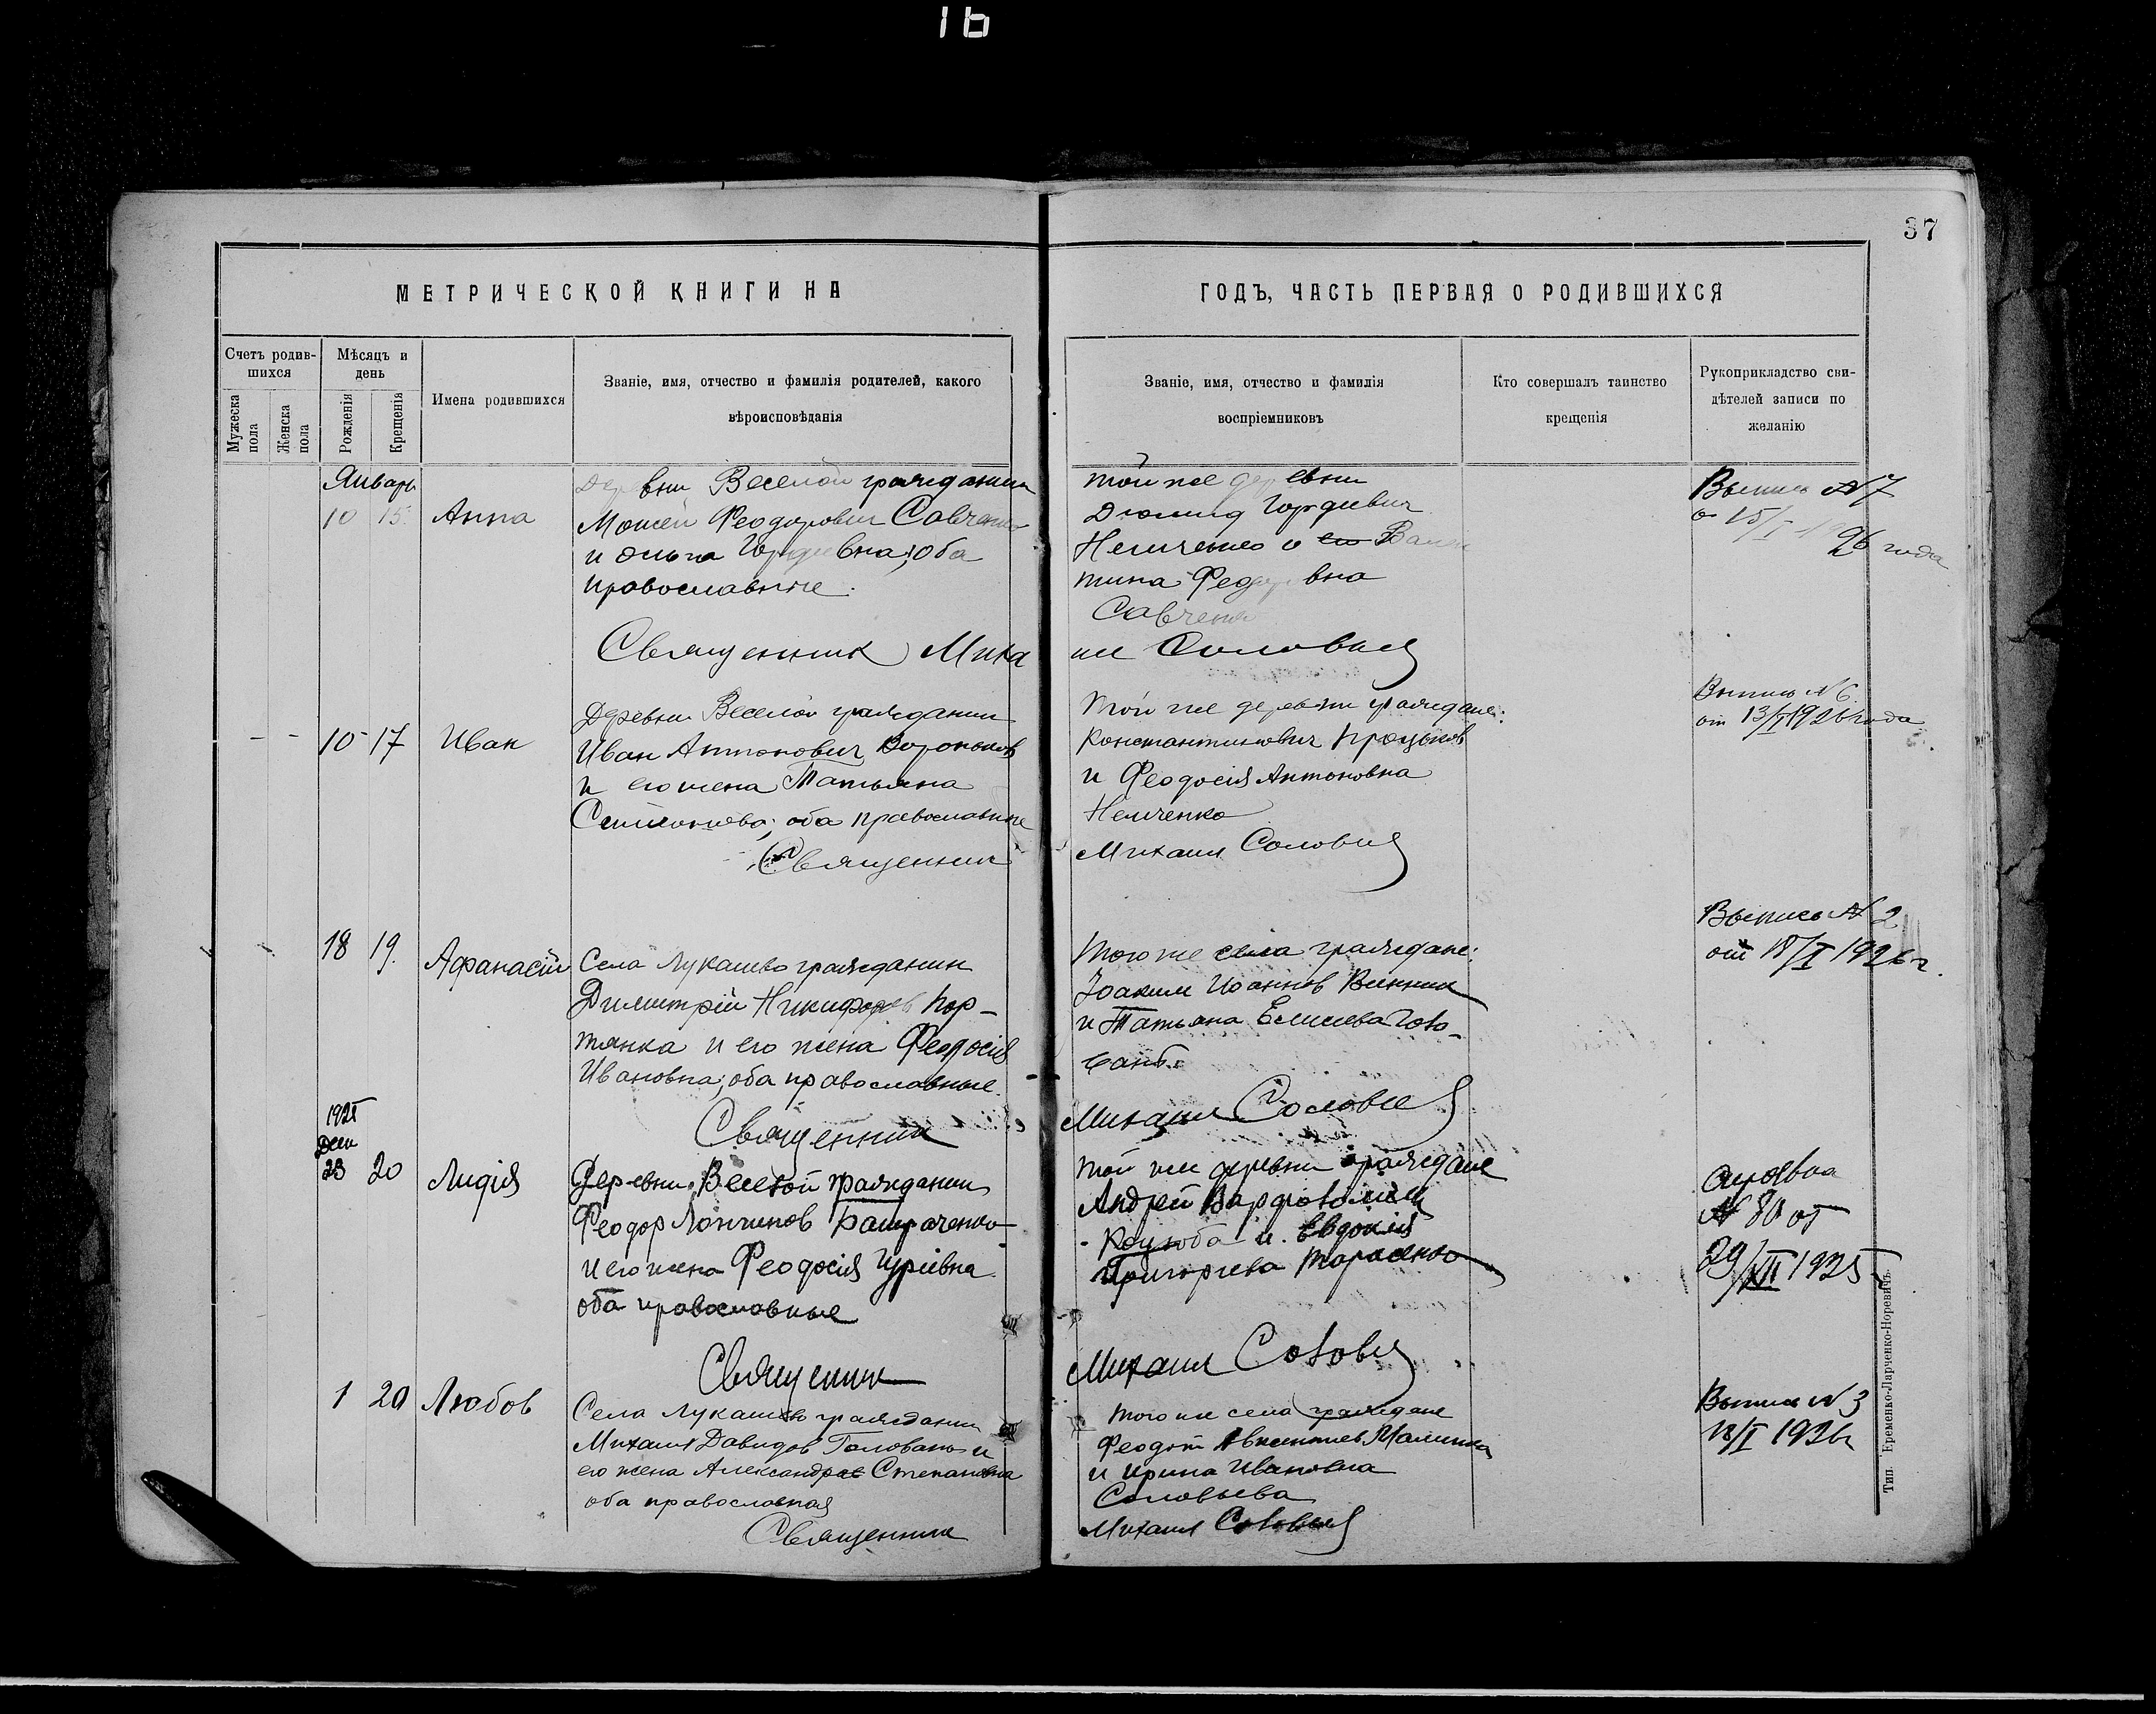 16
37
МЕТРИЧЕСКОЙ КНИГИ НА
ГОДЪ, ЧАСТЬ ПЕРВАЯ О РОДИВШИХСЯ
Счетъ родив-
шихся
Мужеска
пола
Женска
пола
Мѣсяцъ и
день
Рожденія
Крещенія
Имена родившихся
Званіе, имя, отчество и фамилія родителей, какого
вѣроисповѣданія
Званіе, имя, отчество и фамилія
воспріемниковъ
Кто совершалъ таинство
крещенія
Рукоприкладство сви-
дѣтелей записи по
желанію
Январь
10 15. Анна
Деревни Веселой гражданин
Моисей Феодорович Савченко
и Ольга Гордеевна; оба
православные.
Священник Миха
той же деревни
Гордиевич
Немченко и
тина Федоровна
Савченко
ил Соловьев
Выпись №7
о 15/I 1926 года
10 17 Иван
Деревни Веселой гражданин
Иван Антонович Воронков
и его жена Татьяна
оба православные
Священник
той же деревни граждане:
Константинович
и Феодосия Антоновна
Немченко
Михаил Соловьев
Выпись №6
от 13/I 1926 года
18 19. Афанасій
Села Лукашево гражданин
Димитрій Никифоров Кор-
тянка и его жена Феодосия
Ивановна; оба православные.
Священник
того же села граждане:
Иоаким Иоаннов Винник
и Татьяна Елисеева Голо-
вань.
Михаил Соловьев
Выпись № 2
от 18/I 1926 г.
1925
Дек
23 20 Лидія
Деревни Веселой гражданин
Феодор Лонгинов Батраченко
и его жена Феодосия Гуріевна
оба православные
Священник
той же деревни граждане
Андрей Варфоломеев
Коцюба и Евдокия
Григорьева Тарасенко
Михаил Соловьев
Справка
№ 80 от
29/XII 1925
1 20 Любов
Села Лукашево гражданин
Михаил Давидов Головань и
его жена Александра Степановна
оба православная
Священник
того же села граждане
Феодот Авксентиев Малинка
и Ирина Ивановна
Соловьева
Михаил Соловьев
Выпись № 3
18/I 1926 г
Тип. Еременко-Ларченко-Норевичъ